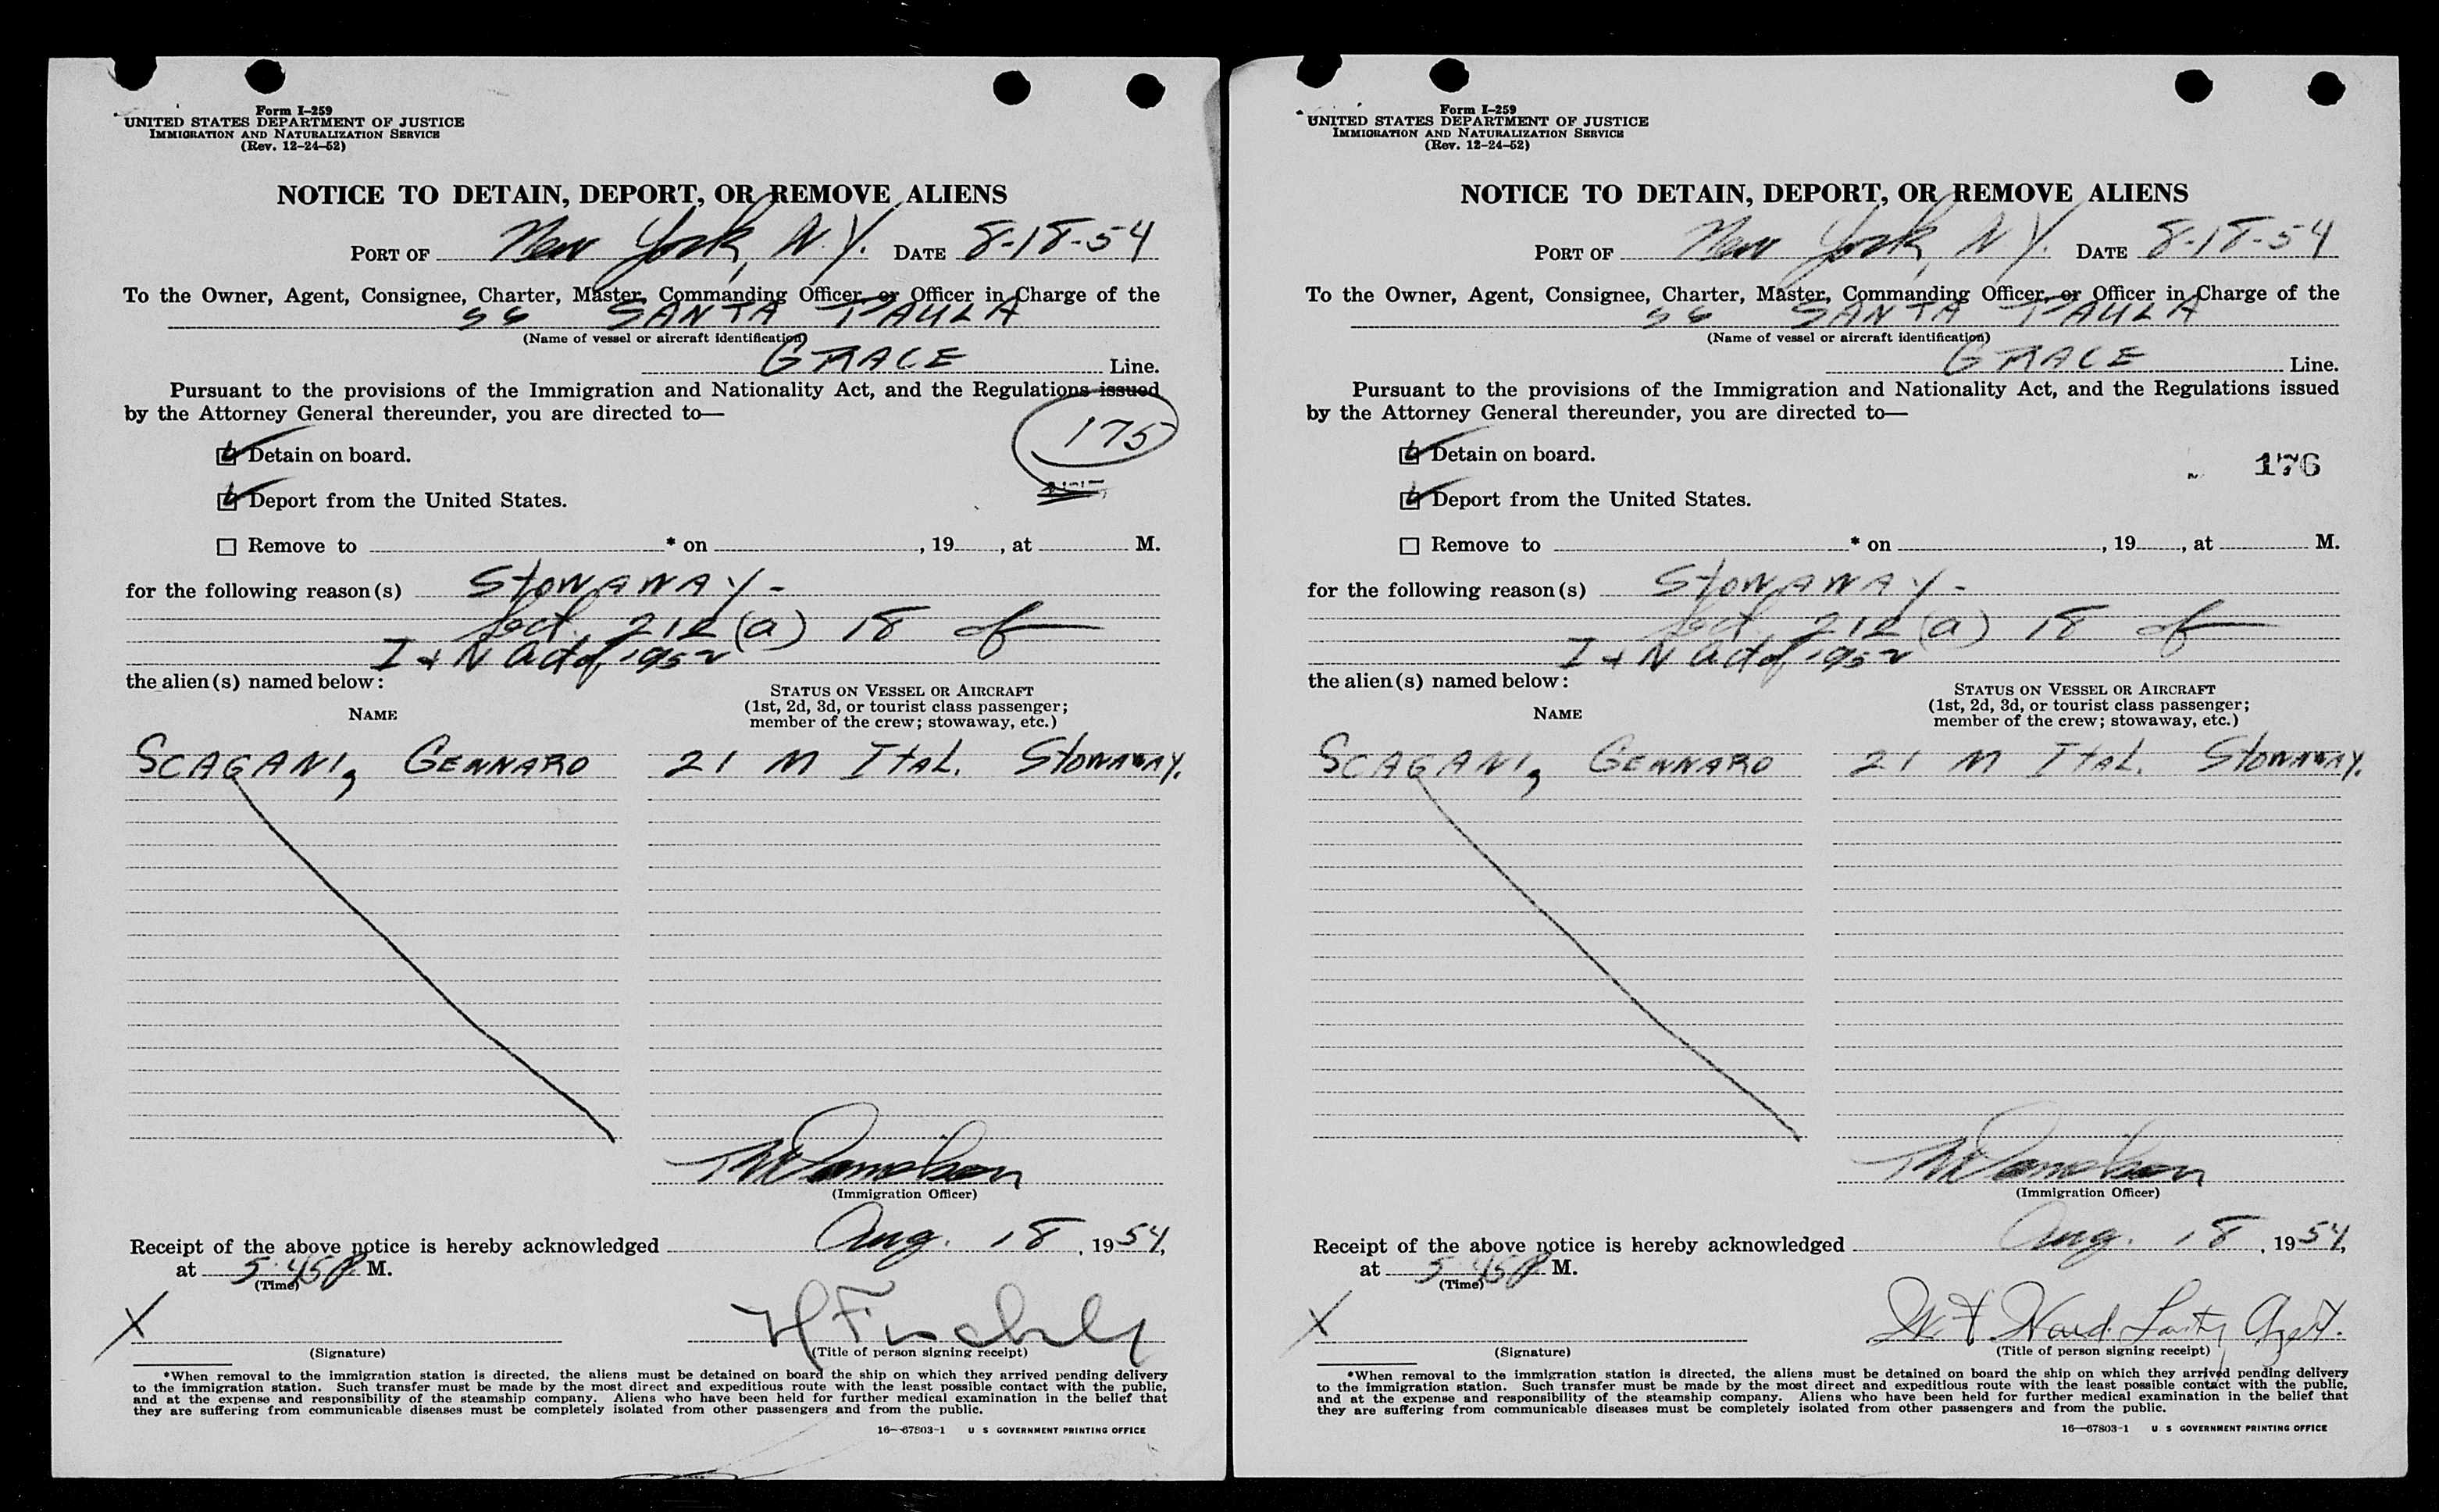 Form I-259
UNITED STATES DEPARTMENT OF JUSTICE
IMMIGRATION AND NATURALIZATION SERVICE
(Rev. 12-24-52)
NOTICE TO DETAIN, DEPORT, OR REMOVE ALIENS
PORT OF New York, N.Y. DATE 8-18-54
To the Owner, Agent, Consignee, Charter, Master, Commanding Officer, or Officer in Charge of the
SS SANTA PAULA
(Name of vessel or aircraft identification)
GRACE Line.
Pursuant to the provisions of the Immigration and Nationality Act, and the Regulations issued
by the Attorney General thereunder, you are directed to—
175
Detain on board.
Deport from the United States.
Remove to * on , 19 , at M.
for the following reason(s) STOWAWAY -
Sect. 212 (a) 18 of
I & N Act of 1952
the alien(s) named below:
NAME
STATUS ON VESSEL OR AIRCRAFT
(1st, 2d, 3d, or tourist class passenger;
member of the crew; stowaway, etc.)
SCAGANI, GENNARO 21 M ITAL. STOWAWAY.
(Immigration Officer)
Receipt of the above notice is hereby acknowledged Aug. 18, 1954,
at 5:45 P. M.
(Time)
X
(Signature)
(Title of person signing receipt)
*When removal to the immigration station is directed, the aliens must be detained on board the ship on which they arrived pending delivery
to the immigration station. Such transfer must be made by the most direct and expeditious route with the least possible contact with the public,
and at the expense and responsibility of the steamship company. Aliens who have been held for further medical examination in the belief that
they are suffering from communicable diseases must be completely isolated from other passengers and from the public.
16—67803-1 U S GOVERNMENT PRINTING OFFICE
Form I-259
UNITED STATES DEPARTMENT OF JUSTICE
IMMIGRATION AND NATURALIZATION SERVICE
(Rev. 12-24-52)
NOTICE TO DETAIN, DEPORT, OR REMOVE ALIENS
PORT OF New York, N.Y. DATE 8-18-54
To the Owner, Agent, Consignee, Charter, Master, Commanding Officer, or Officer in Charge of the
SS SANTA PAULA
(Name of vessel or aircraft identification)
GRACE Line.
Pursuant to the provisions of the Immigration and Nationality Act, and the Regulations issued
by the Attorney General thereunder, you are directed to—
Detain on board.
176
Deport from the United States.
Remove to * on , 19 , at M.
for the following reason(s) STOWAWAY -
Sect. 212 (a) 18 of
I & N Act of 1952
the alien(s) named below:
NAME
STATUS ON VESSEL OR AIRCRAFT
(1st, 2d, 3d, or tourist class passenger;
member of the crew; stowaway, etc.)
SCAGANI, GENNARO 21 M ITAL. STOWAWAY.
(Immigration Officer)
Receipt of the above notice is hereby acknowledged Aug. 18, 1954,
at 5:45 P. M.
(Time)
X
Agent.
(Signature)
(Title of person signing receipt)
*When removal to the immigration station is directed, the aliens must be detained on board the ship on which they arrived pending delivery
to the immigration station. Such transfer must be made by the most direct and expeditious route with the least possible contact with the public,
and at the expense and responsibility of the steamship company. Aliens who have been held for further medical examination in the belief that
they are suffering from communicable diseases must be completely isolated from other passengers and from the public.
16—67803-1 U S GOVERNMENT PRINTING OFFICE